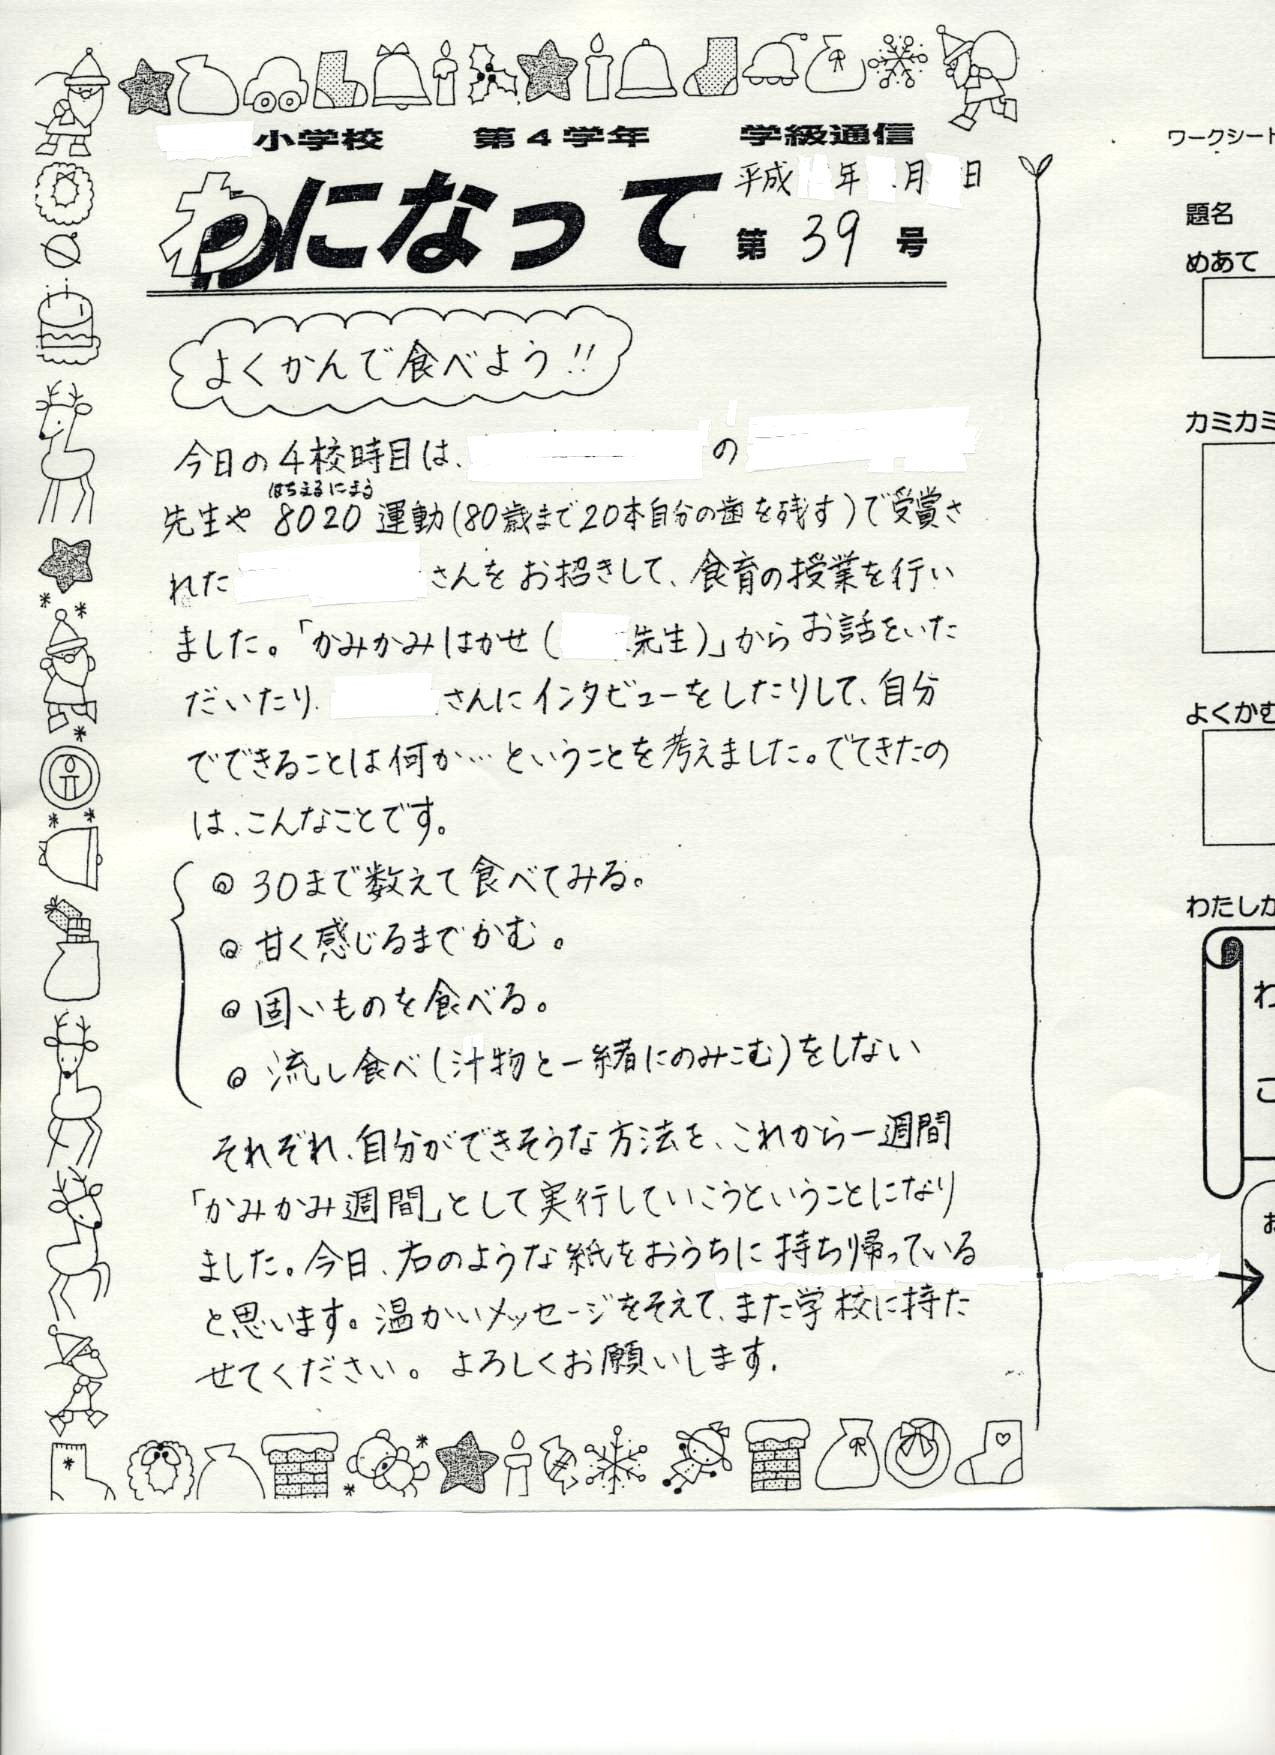 小学校 第4学年 学級通信
わになって
平成 年 月 日
第39号
よくかんで食べよう!!
今日の4校時目は、 の
はちまるにまる
先生や8020運動(80歳まで20本自分の歯を残す)で受賞さ
れた さんをお招きして、食育の授業を行い
ました。「かみかみはかせ( 先生)」からお話をいた
だいたり さんにインタビューをしたりして、自分
でできることは何か…ということを考えました。でてきたの
は、こんなことです。
◎ 30まで数えて食べてみる。
◎ 甘く感じるまでかむ。
◎ 固いものを食べる。
◎ 流し食べ(汁物と一緒にのみこむ)をしない
それぞれ、自分ができそうな方法を、これから一週間
「かみかみ週間」として実行していこうということになり
ました。今日、右のような紙をおうちに持ち帰っている
と思います。温かいメッセージをそえて、また学校に持た
せてください。よろしくお願いします.
ワークシート
題名
めあて
カミカミ
よくかむ
わたしが
わ
こ
お